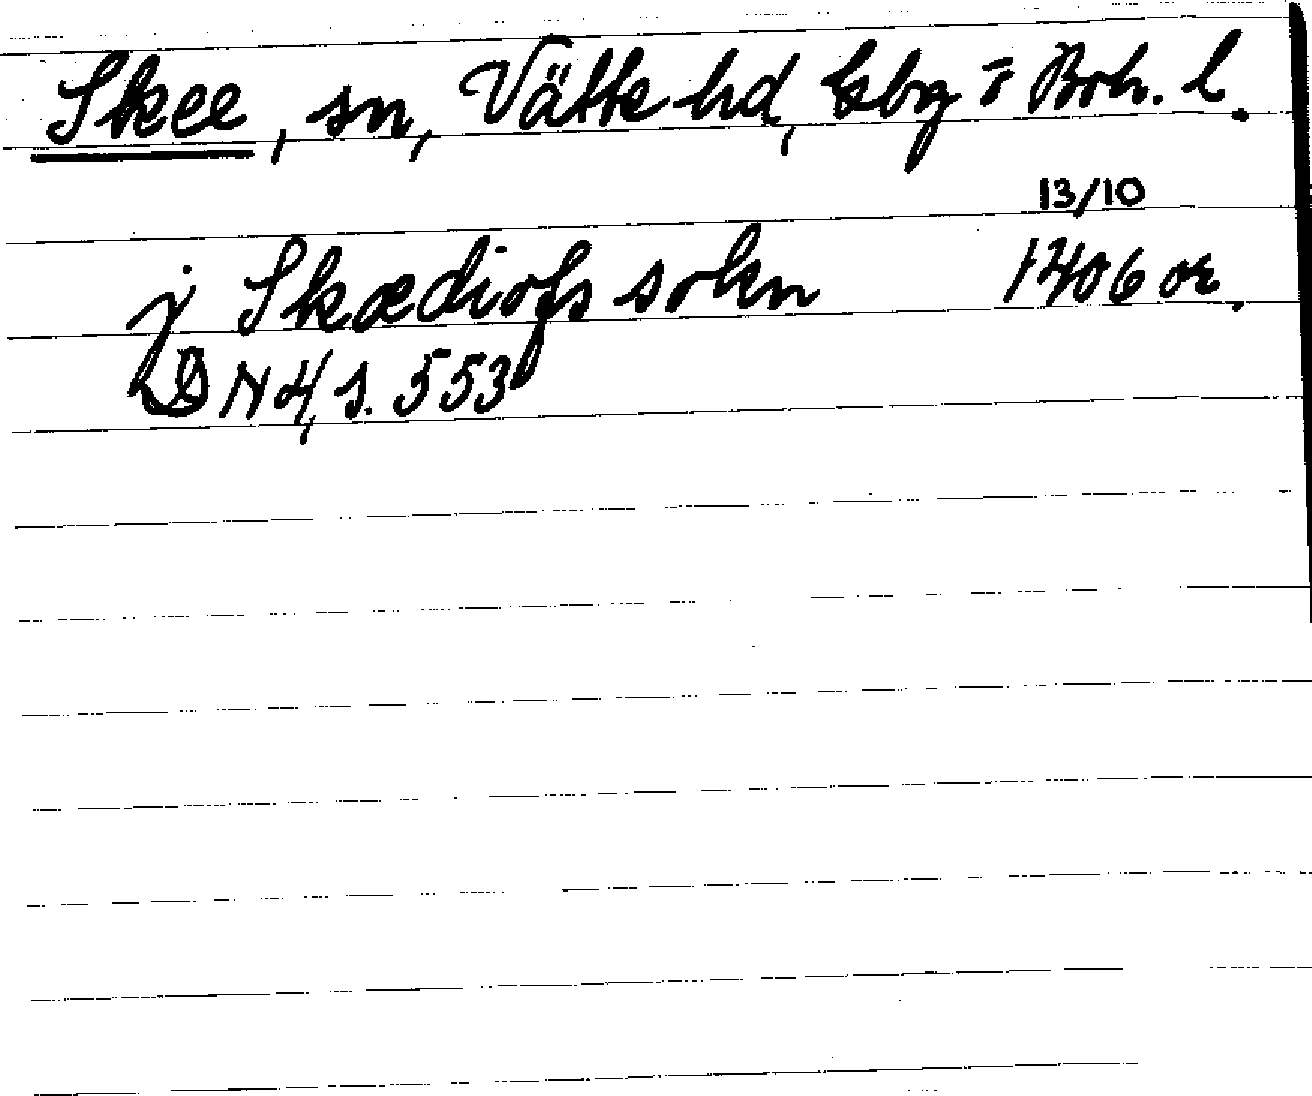 Skee, sn, Vätte hd, Gbg o Boh. l.
13/10
j Skædiofs sokn 1406 or.
DN 4, s. 553